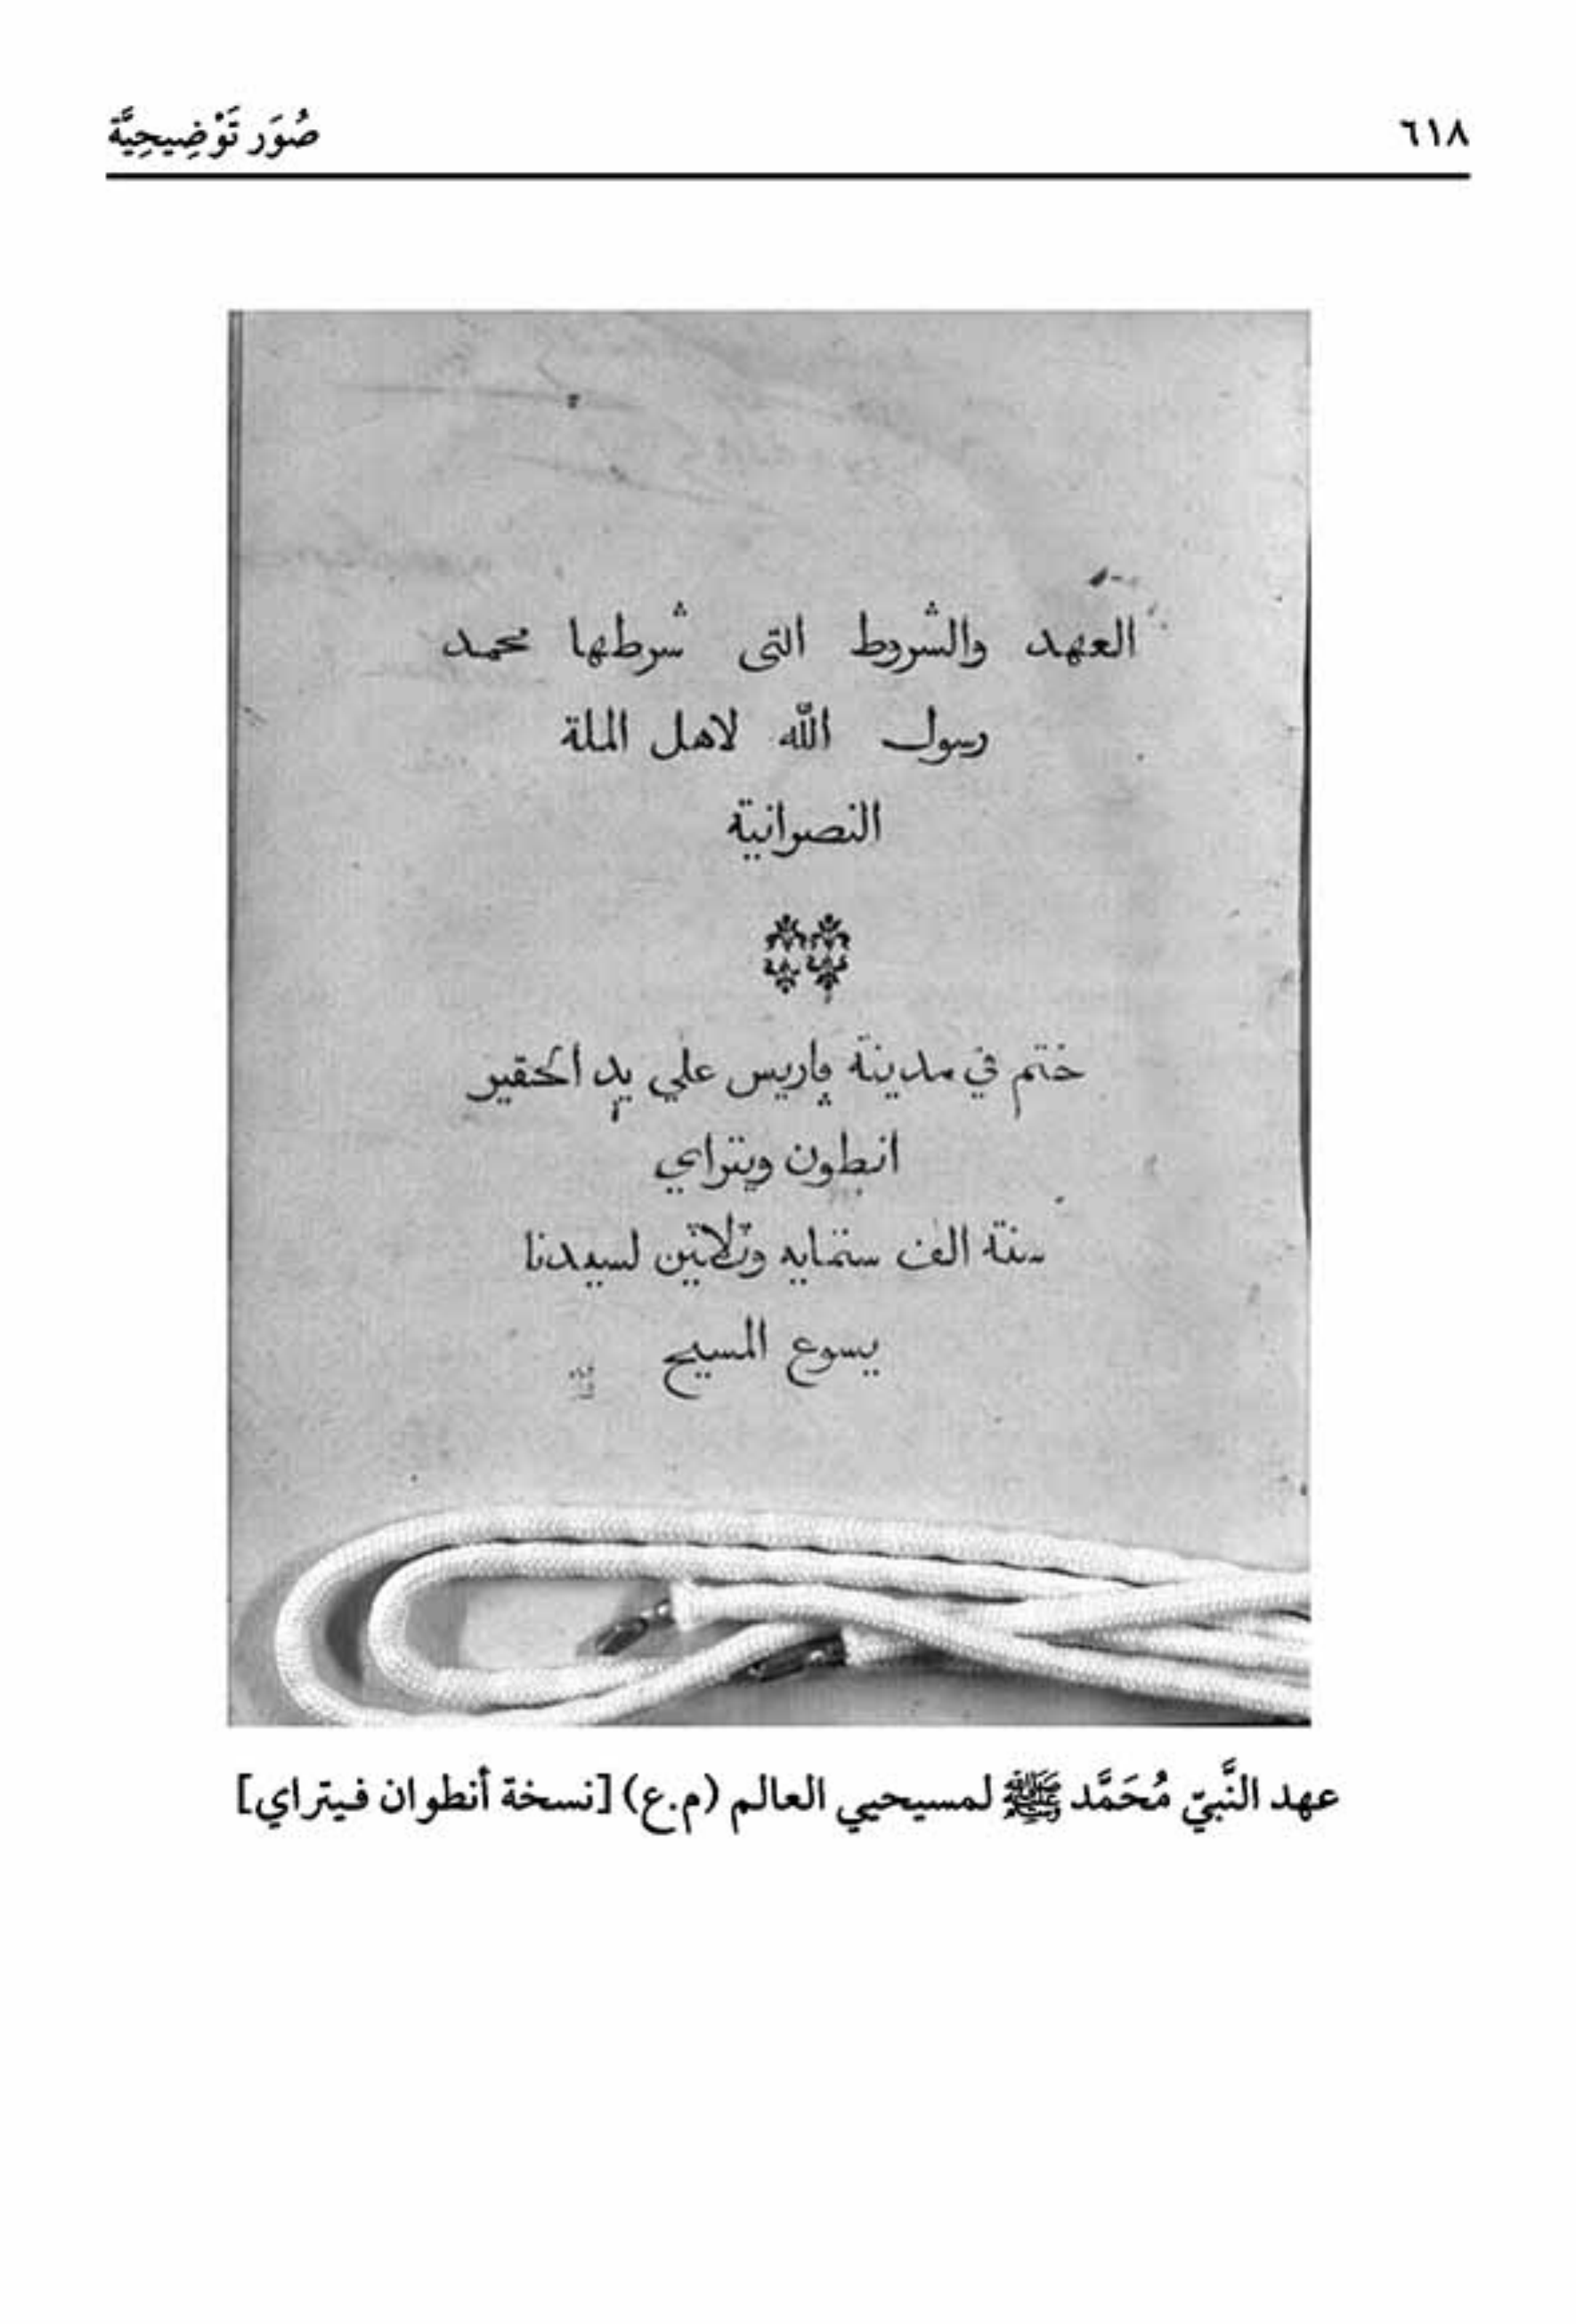 ٦١٨ صُوَر تَوْضِيحِيَّة
العهد والشروط التى شرطها محمد
رسول الله لاهل الملة
النصرانية
ختم في مدينة پاريس علي يد الحقير
انطون ويتراي
سنة الف ستمايه وثلاثين لسيدنا
يسوع المسيح
عهد النَّبيّ مُحَمَّد ﷺ لمسيحيي العالم (م.ع) [نسخة أنطوان فيتراي]